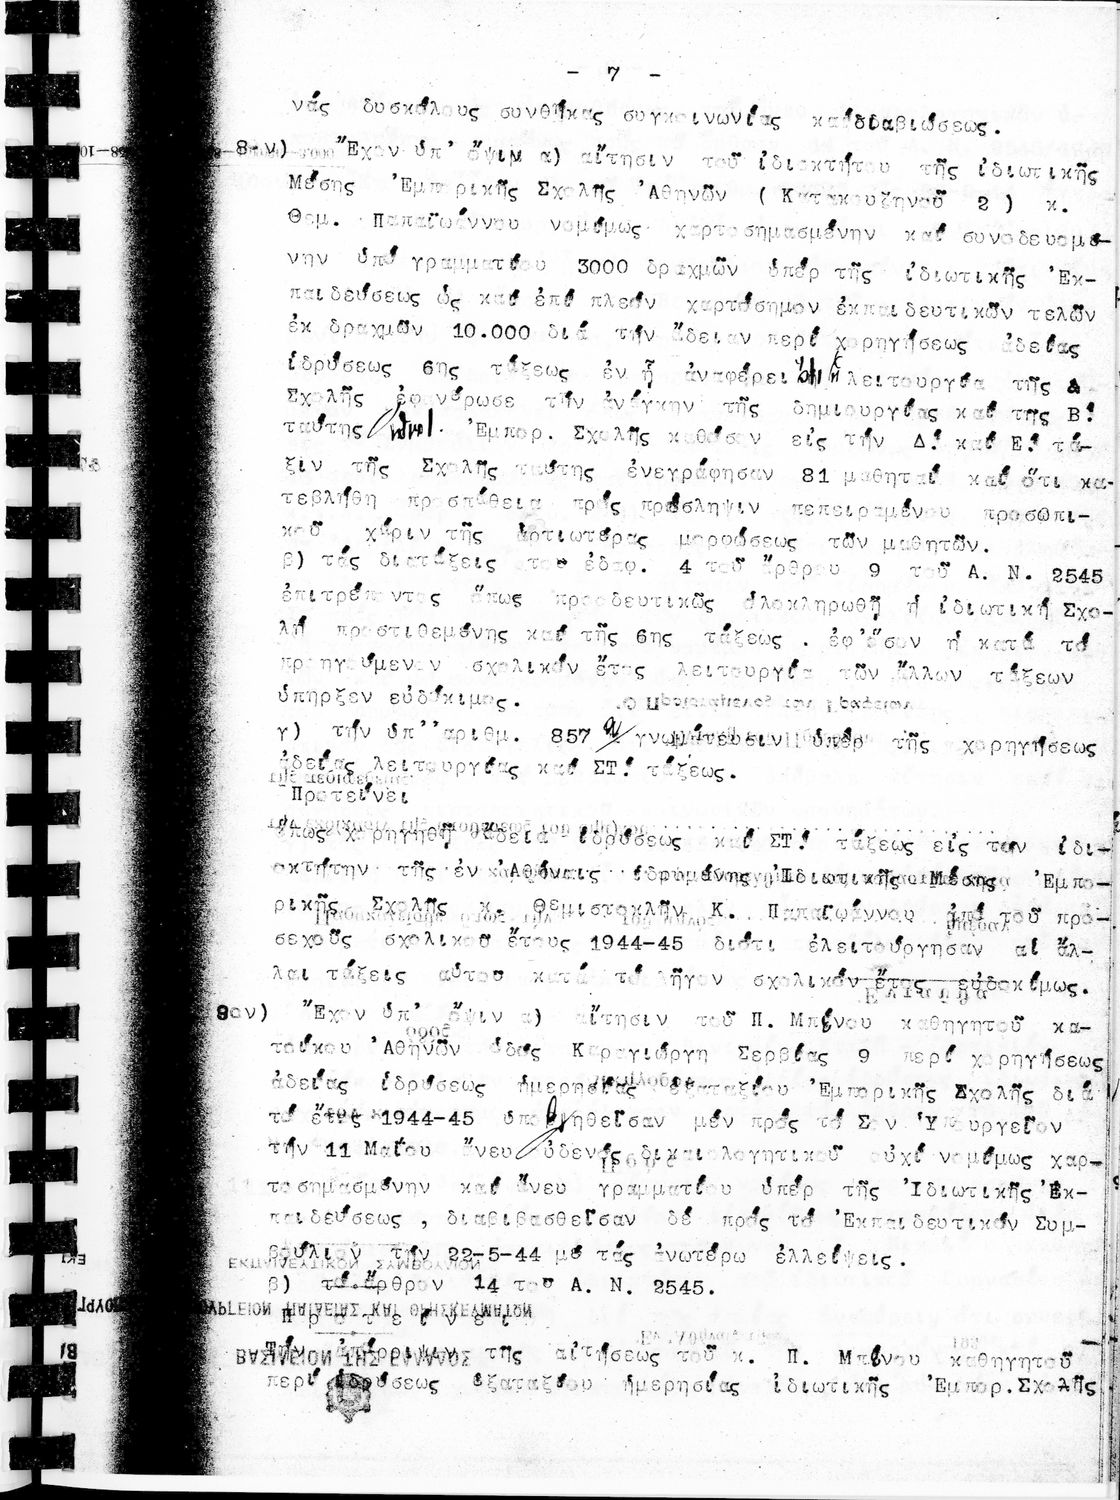 - 7 -
νάς δυσκόλους συνθήκας συγκοινωνίας καί διαβιώσεως.
8ον) Ἔχον ὑπ' ὄψιν α) αἴτησιν τοῦ ἰδιοκτήτου τῆς ἰδιωτικῆς
Μέσης Ἐμπορικῆς Σχολῆς Ἀθηνῶν ( Κατακουζηνοῦ 2 ) κ.
Θεμ. Παπαϊωάννου νομίμως χαρτοσημασμένην καί συνοδευομέ-
νην ὑπό γραμματίου 3000 δραχμῶν ὑπέρ τῆς ἰδιωτικῆς Ἐκ-
παιδεύσεως ὡς καί ἐπί πλέον χαρτόσημον ἐκπαιδευτικῶν τελῶν
ἐκ δραχμῶν 10.000 διά τήν ἄδειαν περί χορηγήσεως ἀδείας
ἱδρύσεως 6ης τάξεως ἐν ᾗ ἀναφέρει ὅτι ἡ λειτουργία τῆς
Σχολῆς ἐφανέρωσε τήν ἀνάγκην τῆς δημιουργίας καί της Β!
ταύτης Ἐμπορ. Σχολῆς καθόσον εἰς τήν Δ! καί Ε! τά-
ξιν τῆς Σχολῆς ταύτης ἐνεγράφησαν 81 μαθηταί καί ὅτι κα-
τεβλήθη προσπάθεια πρός πρόσληψιν πεπειραμένου προσωπι-
κοῦ χάριν τῆς ἀρτιωτέρας μορφώσεως τῶν μαθητῶν.
β) τάς διατάξεις του ἐδαφ. 4 τοῦ ἄρθρου 9 τοῦ Α. Ν. 2545
ἐπιτρέποντος ὅπως προοδευτικῶς ὁλοκληρωθῇ ἡ ἰδιωτική Σχο-
λή προστιθεμένης καί τῆς 6ης τάξεως . ἐφ'ὅσον ἡ κατά τό
προηγούμενον σχολικόν ἔτος λειτουργία τῶν ἄλλων τάξεων
ὑπῆρξεν εὐδόκιμος.
γ) τήν ὑπ' ἀριθμ. 857 γνωμάτευσιν ὑπέρ τῆς χορηγήσεως
ἀδείας λειτουργίας καί ΣΤ! τάξεως.
Προτείνει
ὅπως χορηγηθῇ ἄδεια ἱδρύσεως καί ΣΤ! τάξεως εἰς τον ἰδι-
οκτήτην τῆς ἐν Ἀθήναις ἑδρυμένης Ἰδιωτικῆς Μέσης Ἐμπο-
ρικῆς Σχολῆς κ. Θεμιστοκλῆν Κ. Παπαϊωάννου ἀπό τοῦ προ-
σεχοῦς σχολικοῦ ἔτους 1944-45 διότι ἐλειτούργησαν αἱ ἄλ-
λαι τάξεις αὐτοῦ κατά τό λῆγον σχολικόν ἔτος εὐδοκίμως.
9ον) Ἔχον ὑπ' ὄψιν α) αἴτησιν τοῦ Π. Μπίνου καθηγητοῦ κα-
τοίκου Ἀθηνῶν ὁδός Καραγιώργη Σερβίας 9 περί χορηγήσεως
ἀδείας ἱδρύσεως ἡμερησίας ἑξαταξίου Ἐμπορικῆς Σχολῆς διά
τό ἔτος 1944-45 ὑποβληθεῖσαν μέν πρός τό Σον Ὑπουργεῖον
τήν 11 Μαΐου ἄνευ οὐδενός δικαιολογητικοῦ οὐχί νομίμως χαρ-
τοσημασμένην καί ἄνευ γραμματίου ὑπέρ τῆς Ἰδιωτικῆς Ἐκ-
παιδεύσεως , διαβιβασθεῖσαν δέ πρός τό Ἐκπαιδευτικόν Συμ-
βούλιον τήν 22-5-44 μέ τάς ἀνωτέρω ἐλλείψεις.
β) τό ἄρθρον 14 του Α. Ν. 2545.
Προτείνει
Τήν ἀπόρριψιν τῆς αἰτήσεως τοῦ κ. Π. Μπίνου καθηγητοῦ
περί ἱδρύσεως ἑξαταξίου ἡμερησίας ἰδιωτικῆς Ἐμπορ.Σχολῆς